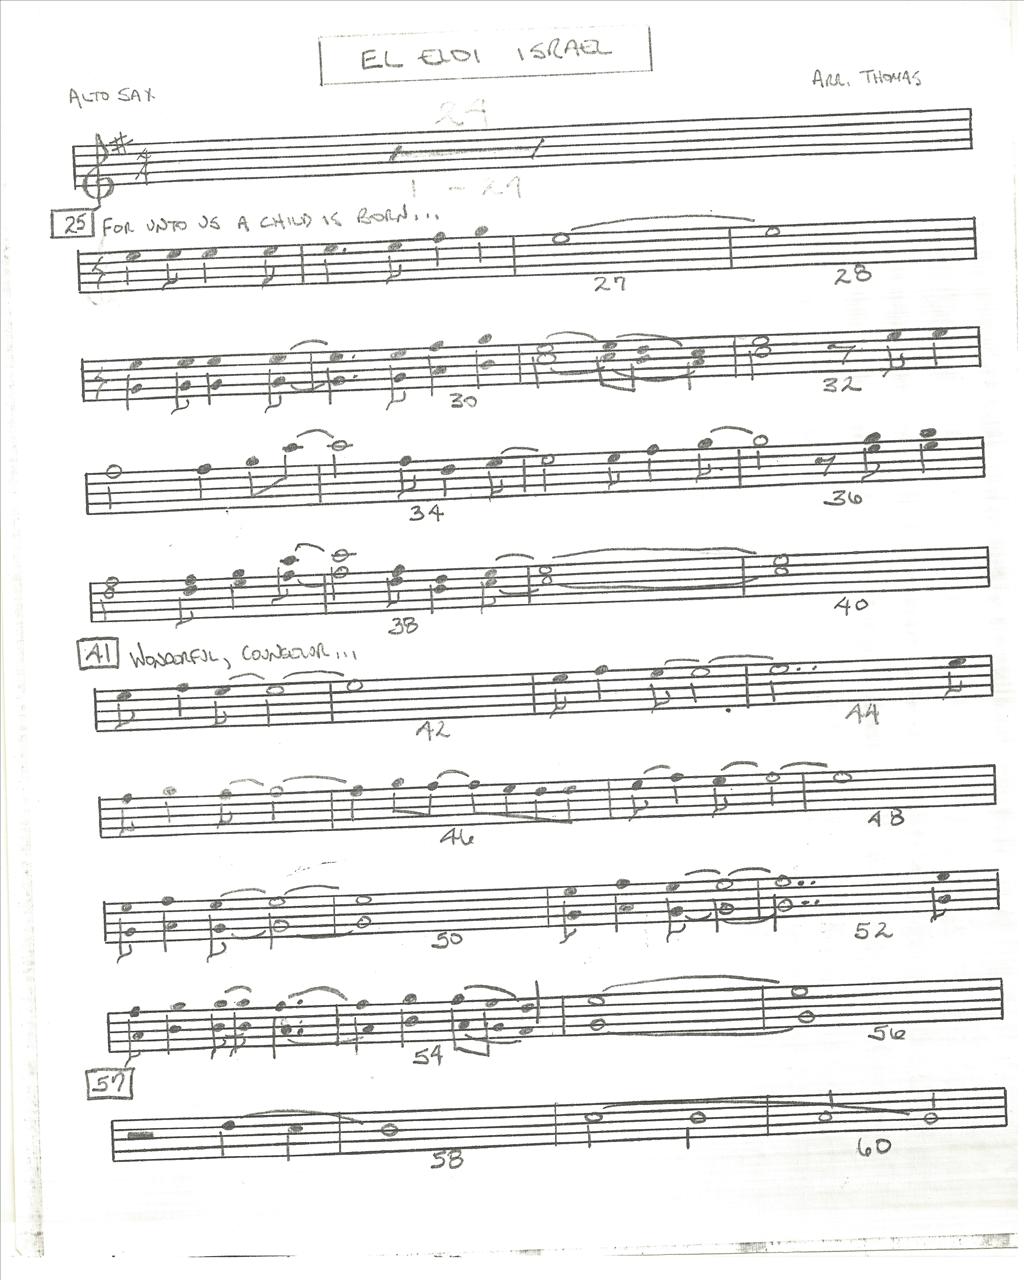 EL ELOI ISRAEL
ALTO SAX
ARR. THOMAS
24
1 - 24
25 FOR UNTO US A CHILD IS BORN...
27 28
30 32
34 36
38 40
41 WONDERFUL, COUNSELOR...
42 44
46 48
50 52
54 56
57
58 60